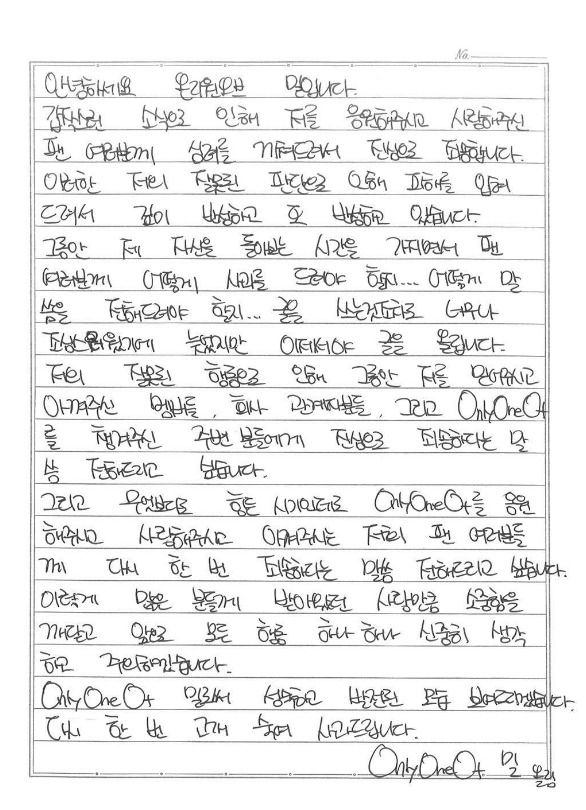 No.
안녕하세요 온리원오브 밀입니다.
갑작스런 소식으로 인해 저를 응원해주시고 사랑해주신
팬 여러분께 심려를 끼쳐드려서 진심으로 죄송합니다.
이러한 저의 잘못된 판단으로 인해 피해를 입혀
드려서 깊이 반성하고 또 반성하고 있습니다.
그동안 제 자신을 돌아보는 시간을 가지면서 팬
여러분께 어떻게 사과를 드려야 할지... 어떻게 말
씀을 전해드려야 할지... 글을 쓰는것조차도 너무나
조심스러웠기에 늦었지만 이제서야 글을 올립니다.
저의 잘못된 행동으로 인해 그동안 저를 믿어주시고
아껴주신 멤버들, 회사 관계자분들, 그리고 OnlyOneOf
를 챙겨주신 주변 분들에게 진심으로 죄송하다는 말
씀 전해드리고 싶습니다.
그리고 무엇보다도 힘든 시기인데도 OnlyOneOf를 응원
해주시고 사랑해주시고 아껴주시는 저희 팬 여러분들
께 다시 한 번 죄송하다는 말씀 전해드리고 싶습니다.
이렇게 많은 분들께 받아왔던 사랑만큼 소중함을
깨닫고 앞으로 모든 행동 하나 하나 신중히 생각
하고 주의하겠습니다.
OnlyOneOf 밀로써 성숙하고 발전된 모습 보여드리겠습니다.
다시 한 번 고개 숙여 사과드립니다.
OnlyOneOf 밀 올림